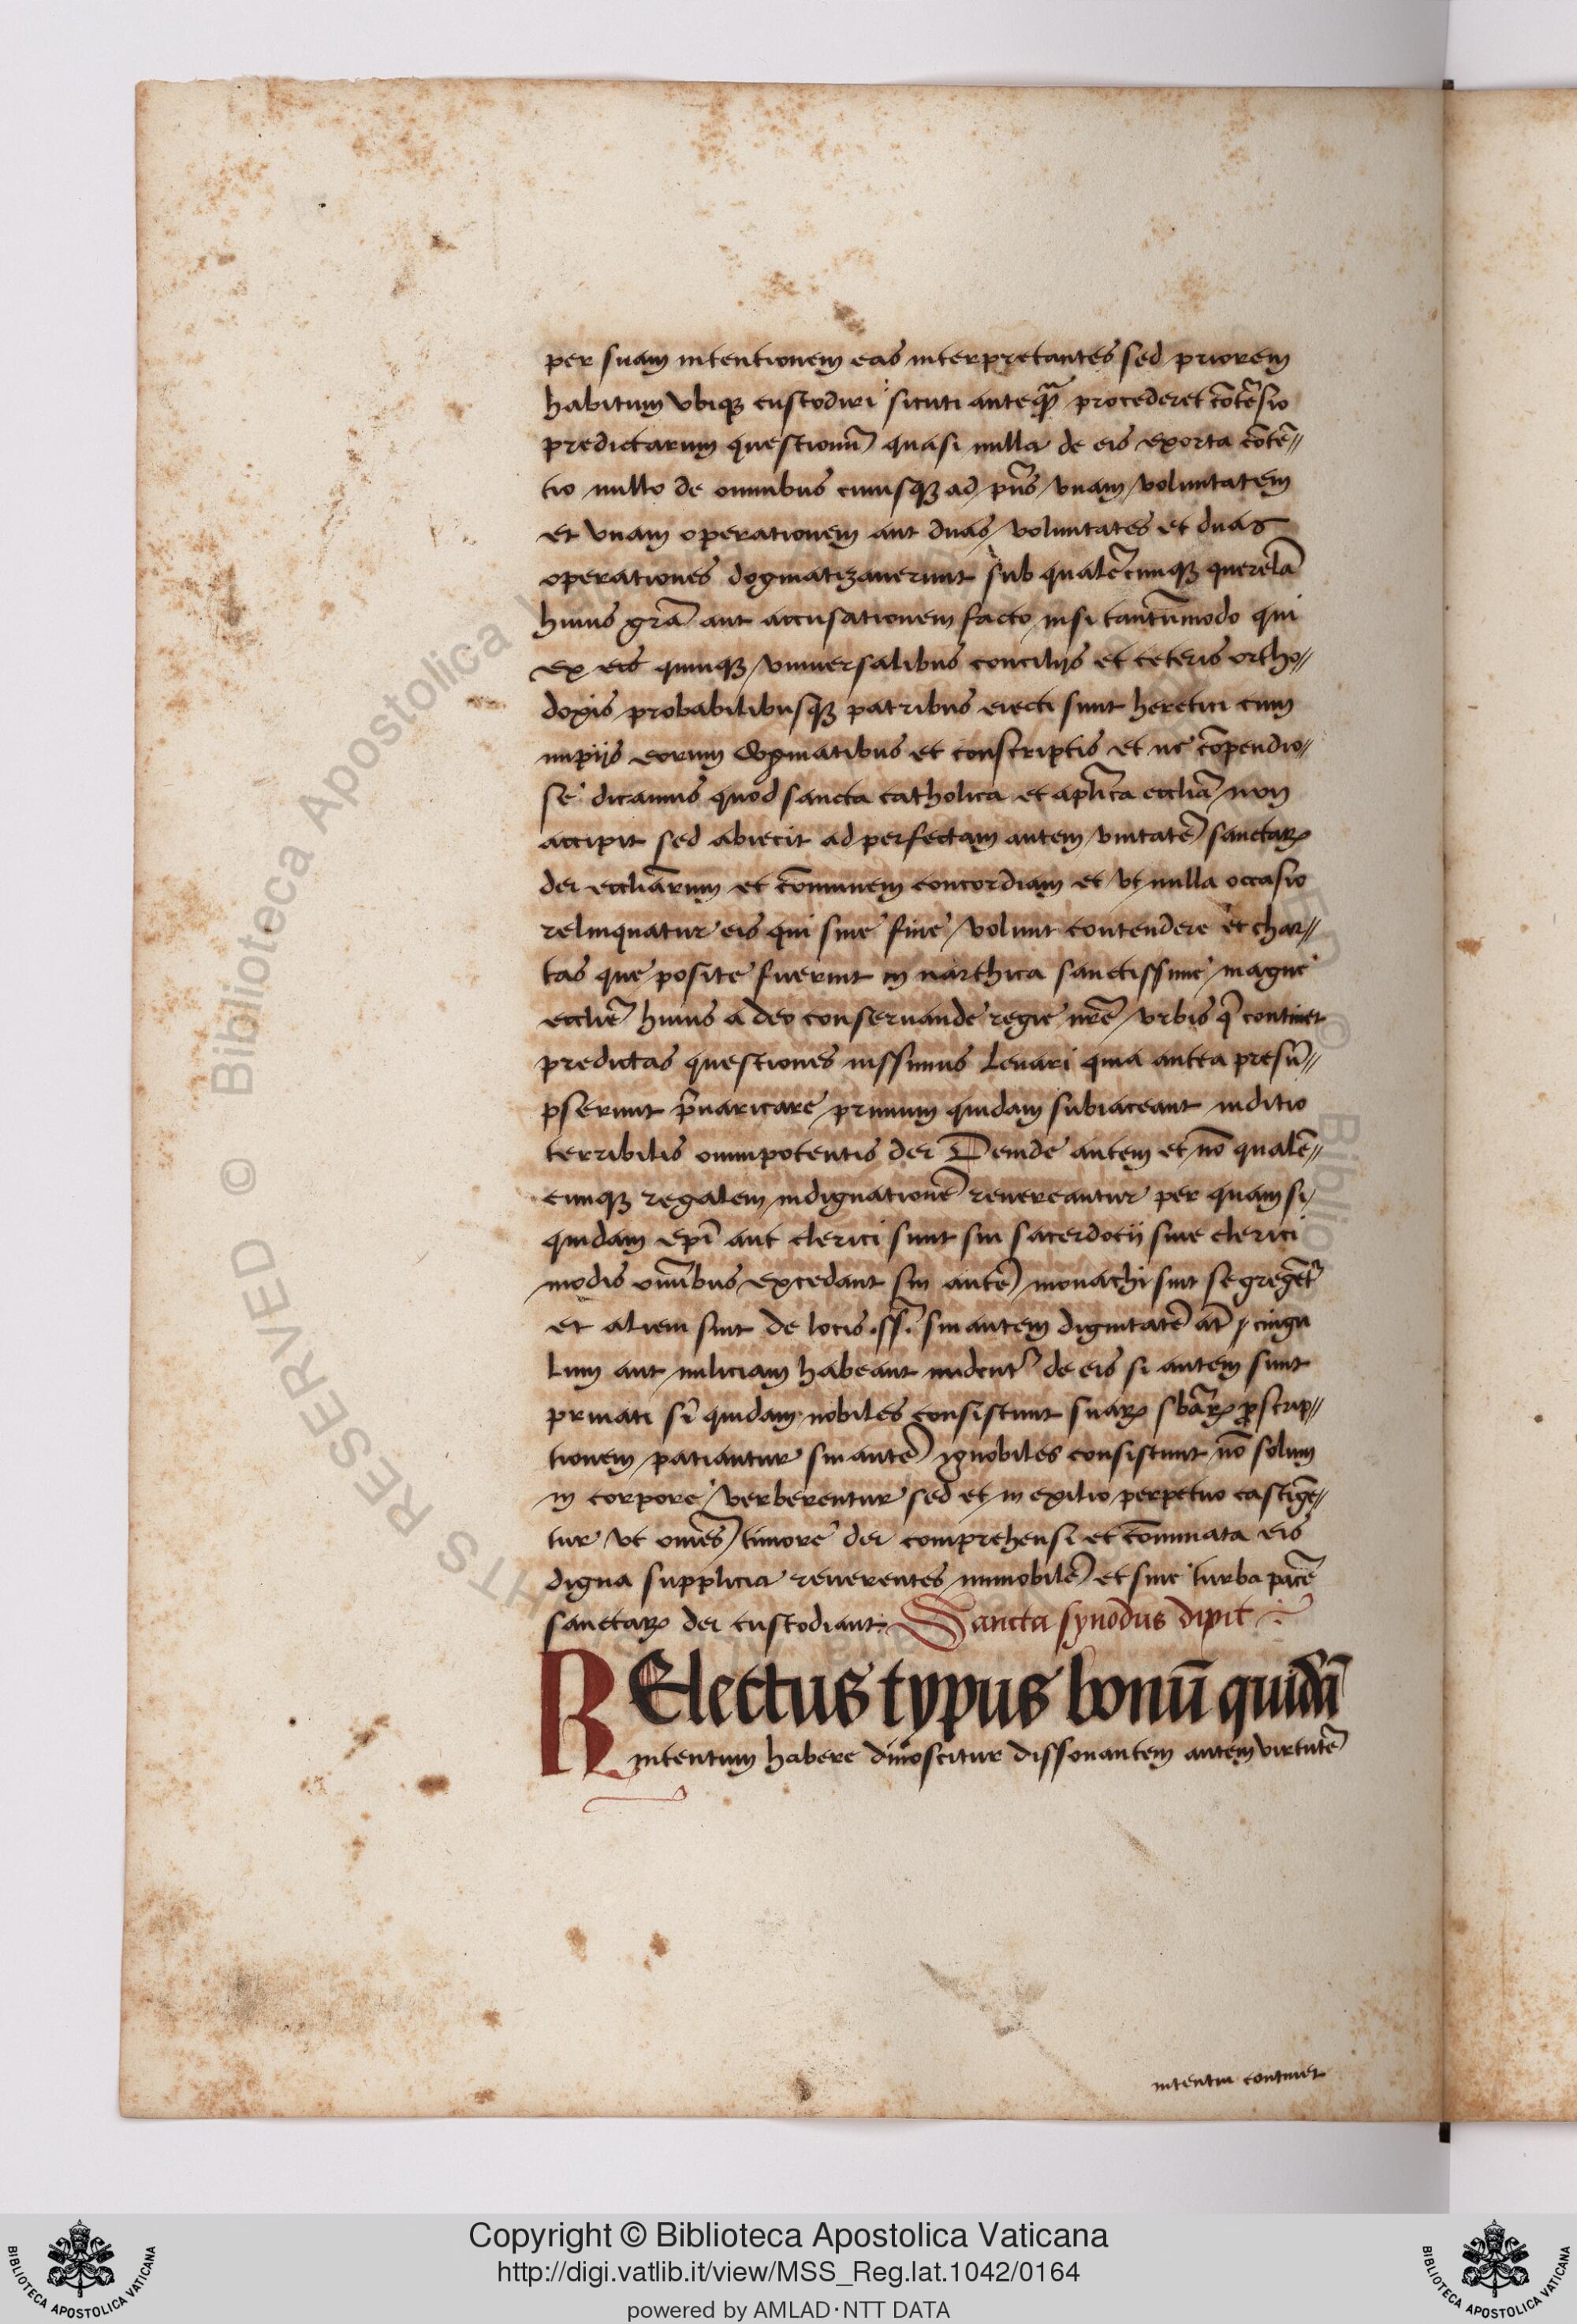 per suam intentionem eas interpretantes sed priorem
habitum vbiqꝫ custodiri sicuti anteqꝫ̃ procederet cõtẽsio
predictarum questionũ quasi nulla de eis exorta cõtẽ//
tio nullo de omnibus cuiusqꝫ ad pñs vnam voluntatem
et vnam operationem aut duas voluntates et duas
operationes dogmatizauerunt sub qualẽcunqꝫ querelã
huius grã aut accusationem facto nisi tantũmodo qui
ex eis quinqꝫ vniuersalibus concilijs et ceteris ortho//
doxis probabilibusqꝫ patribus eiecti sunt heretici cum
impijs eorum dogmatibus et conscriptis et ut cõpendio//
se dicamus quod sancta catholica et aplĩca eccliã non
accipit sed abiecit ad perfectam autem vnitatẽ sanctaꝝ
dei eccliãrum et cõmunem concordiam et vt nulla occasio
relinquatur eis qui sine fine volunt contendere et char//
tas que posite fuerint in narthica sanctissime magne
eccliẽ huius a deo conseruande regie nrẽ vrbis q̃ continet
predictas questiones iussimus leuari quia antea presũ//
pserunt p̃uaricare primum quidam subiaceant iuditio
terribilis omnipotentis dei Deinde autem et nõ qualẽ//
cunqꝫ regalem indignationẽ reuereantur per quam si
quidam epĩ aut clerici sunt siu sacerdocij siue clerici
modis omĩbus excedant sin autẽ monachi sint segregẽt᷑
et alieni sint de locis .ss̃. sin autem dignitatẽ at̃ cingu
lum aut miliciam habeant nudent᷑ de eis si autem sunt
priuati sĩ quidam nobiles consistunt suaꝝ sbãꝝ ꝓscrip//
tionem patiantur sin autẽ ignobiles consistunt nõ solum
in corpore verberentur sed et in exilio perpetuo castigẽ//
tur vt omẽs timore dei comprehensi et cõminata eis
digna supplicia reuerentes immobilẽ et sine turba pacẽ
sanctaꝝ dei custodiant: Sancta synodus dixit :~
RElectus typus bonũ quidẽ
intentum habere dinoscitur dissonantem autem virtutẽ
intentui continet
Copyright © Biblioteca Apostolica Vaticana
http://digi.vatlib.it/view/MSS_Reg.lat.1042/0164
powered by AMLAD·NTT DATA